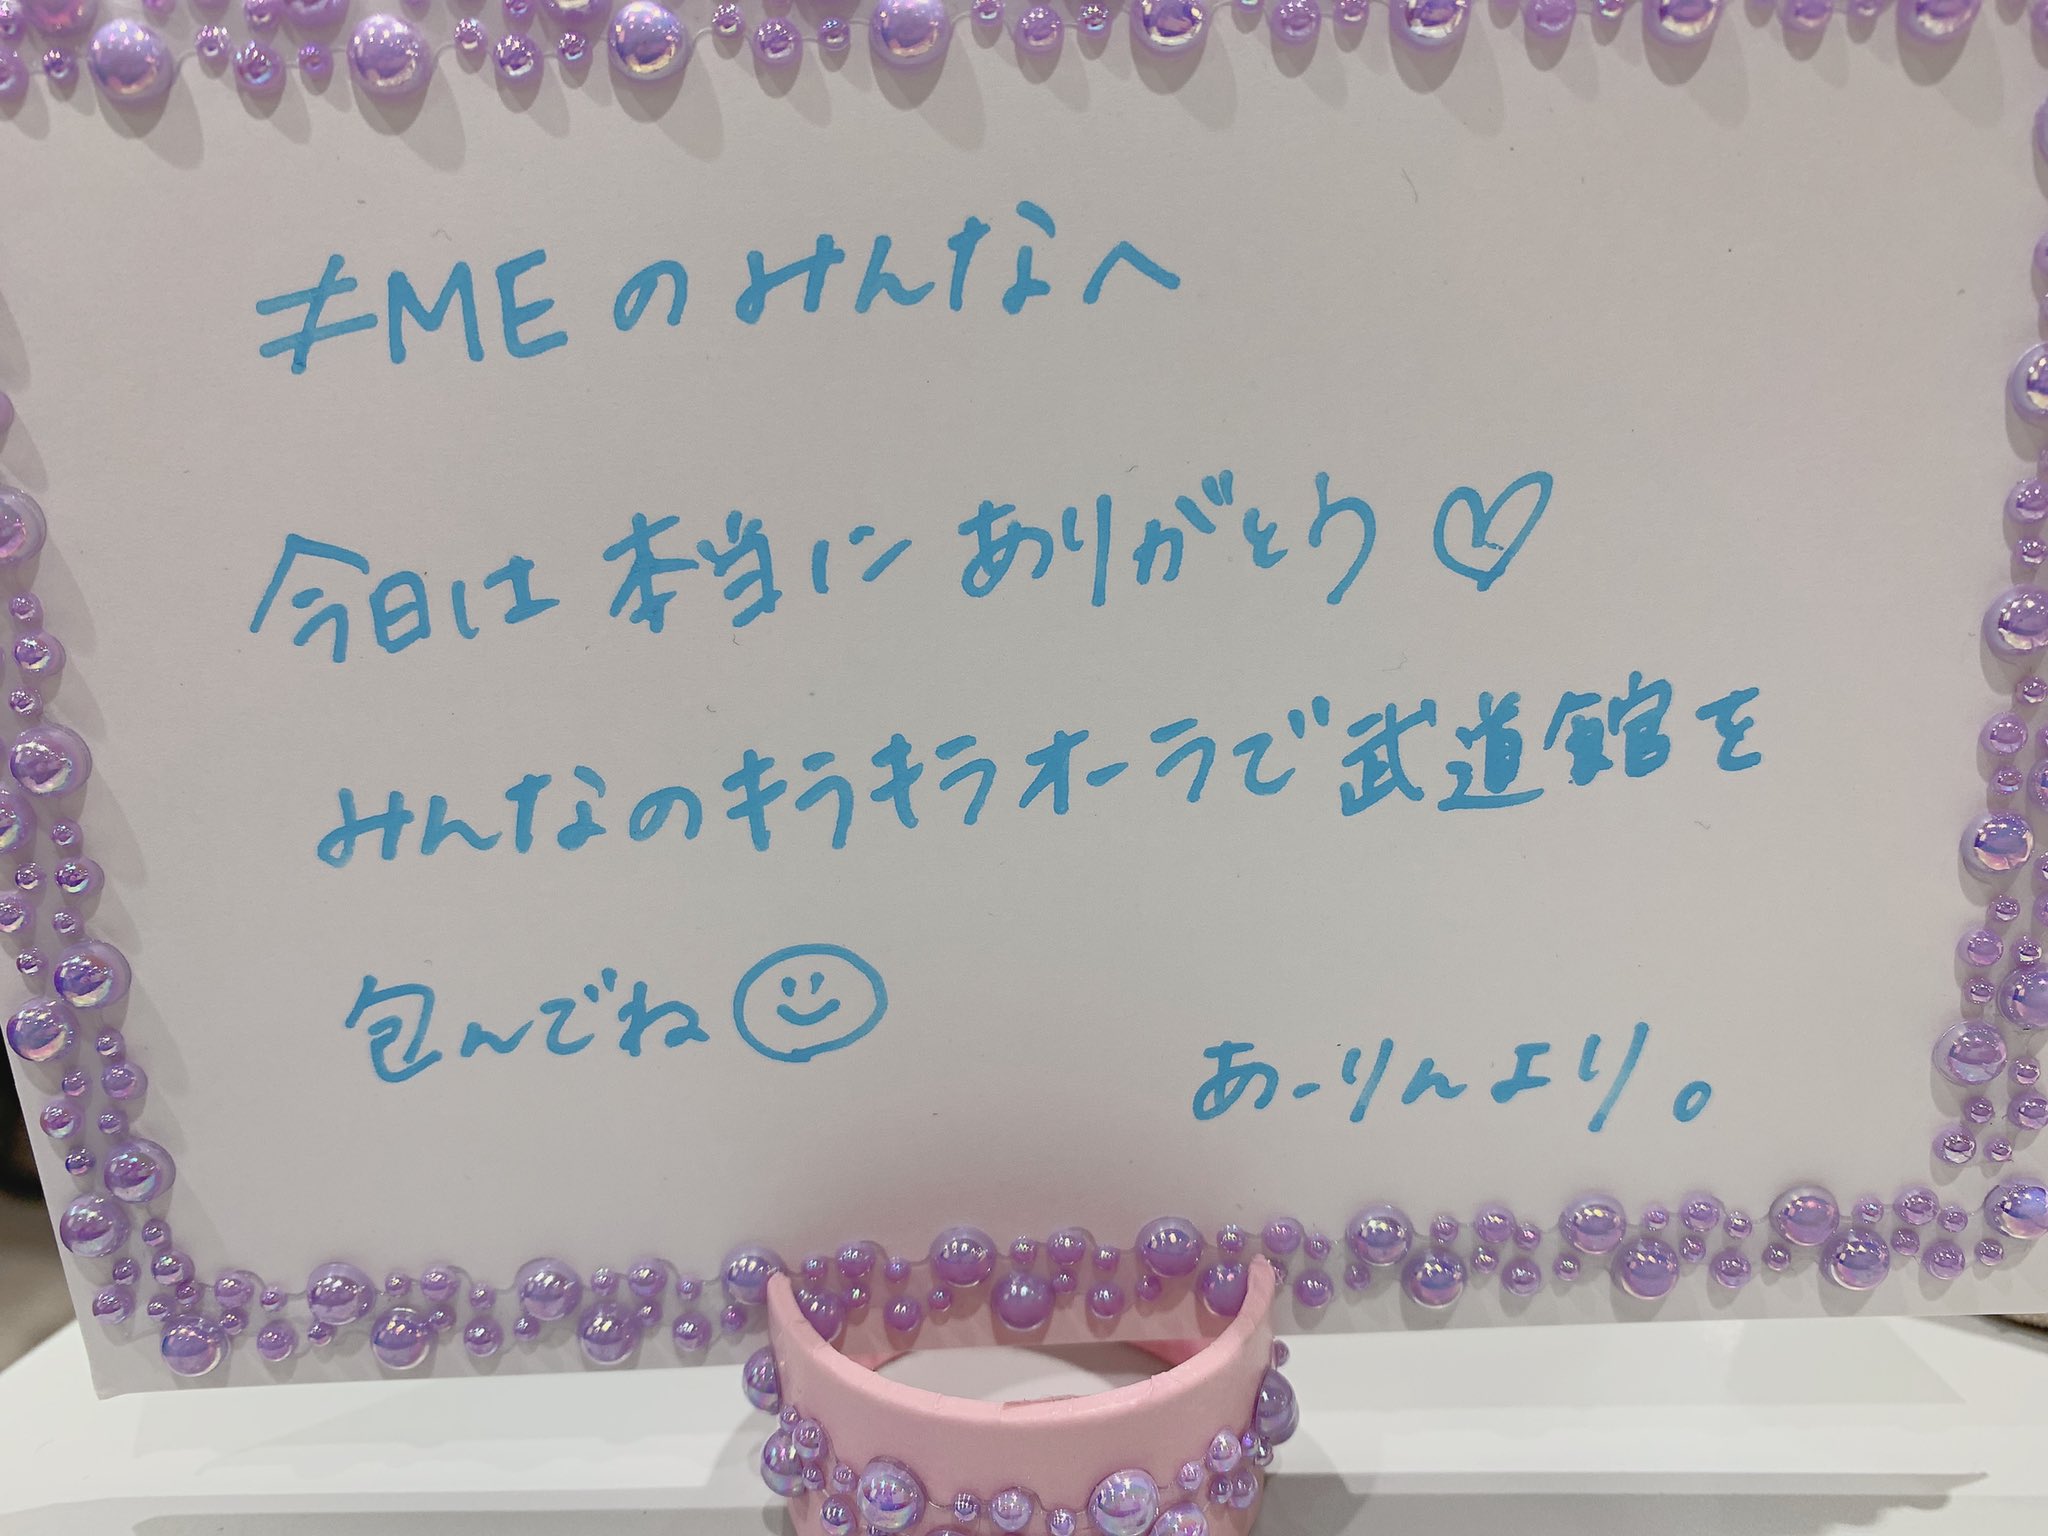 ≠MEのみんなへ
今日は本当にありがとう♡
みんなのキラキラオーラで武道館を
包んでね☺
あーりんより。